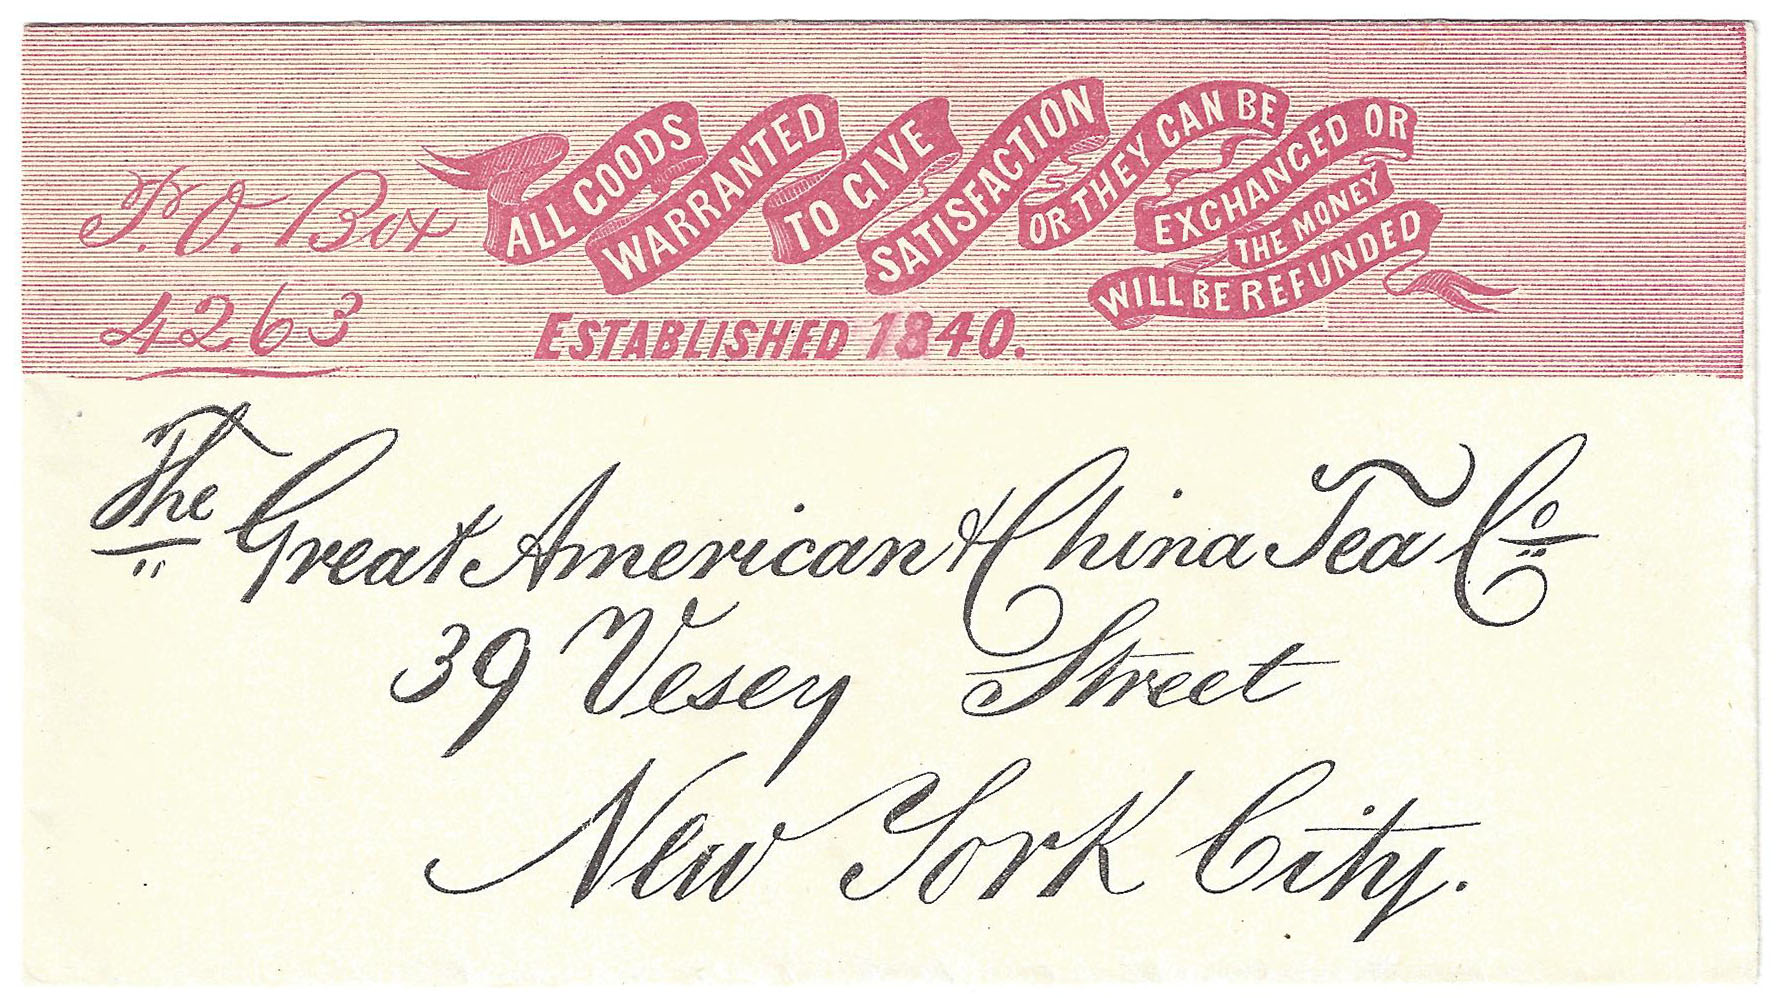 P.O. Box
4263
ALL GOODS
WARRANTED
TO GIVE
SATISFACTION
OR THEY CAN BE
EXCHANGED OR
THE MONEY
WILL BE REFUNDED
ESTABLISHED 1840.
The Great American & China Tea Co
39 Vesey Street
New York City.